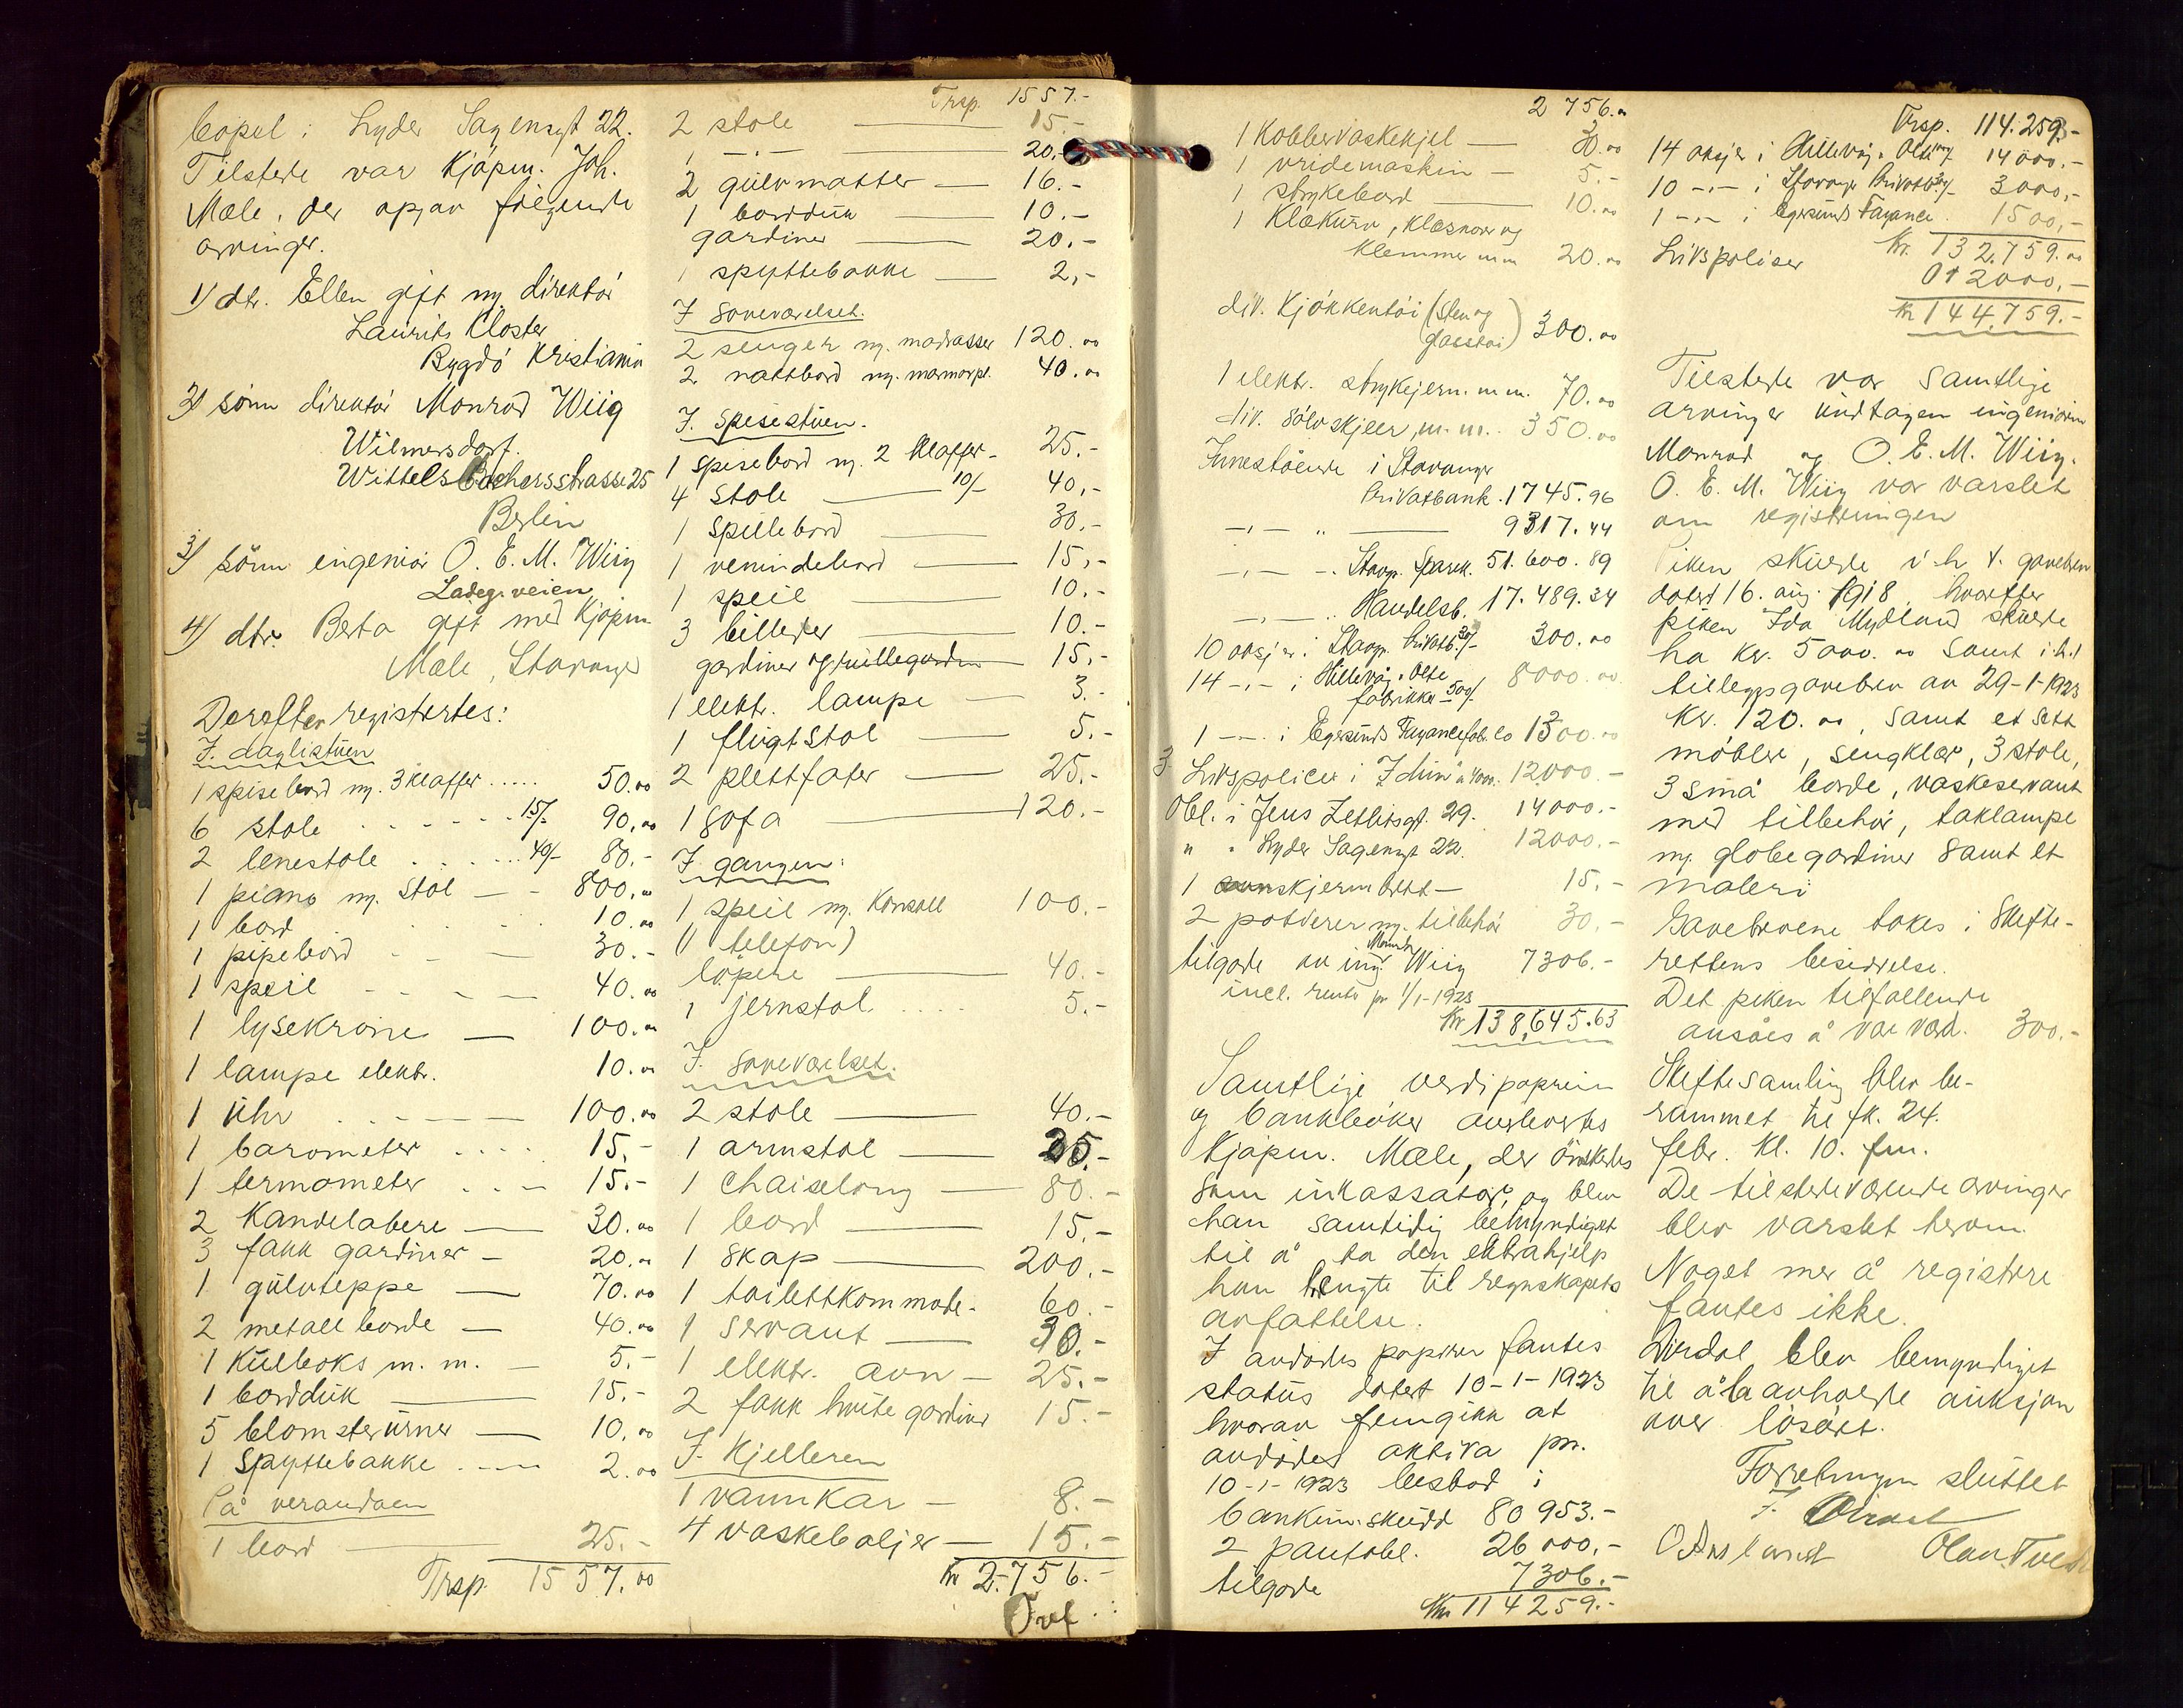 bopel i Lyder Sagensgt 22.
Tilstede var Kjøpm. Joh.
Mæle, der opgav følgende
arvinger.
1) dtr. Ellen gift m. direktör
Laurits Kloster
Bygdö Kristiania
2) sönn direktör Monrad Wiig
Wilmersdorf.
Wittelsbachersstrasse 25
Berlin
3) sönn ingeniör O. E. M. Wiig
Ladeg.veien
4) dtr. Berta gift med Kjöpm.
Mæle, Stavanger
Derefter registertes:
I daglistuen
1 spisebord m. 3 klaffer ..... 50.00
6 stole 15/- 90.00
2 lenestole 40/- 80.-
1 piano m. stol — 800.00
1 bord 10.00
1 pipebord 30.-
1 speil 40.00
1 lysekrone — 100.00
1 lampe elektr. 10.00
1 Uhr 100.00
1 barometer .... 15.-
1 termometer ... 15.-
2 Kandelabere — 30.00
3 fakk gardiner — 20.00
1 gulvteppe — 70.00
2 metall borde — 40.00
1 Kulboks m. m. — 5.-
1 bordduk — 15.-
5 blomsterurner — 10.00
1 Spyttebakke 2.00
På verandaen
1 bord 25.-
Trsp. 1557.00
Trsp. 1557.-
2 stole — 15.-
1 —"— 20.-
2 gulvmatter — 16.-
1 bordduk — 10.-
gardiner — 20.-
1 spyttebakke — 2,-
I soveværelset.
2 senger m. madrasser 120.00
2 nattbord m. marmorpl. 40.00
I. Spisestuen.
1 spisebord m. 2 klaffer - 25.-
4 stole — 10/- 40,-
1 spillebord 30.-
1 venindebord — 15,-
1 speil — 10.-
3 billeder — 10.-
gardiner og rullegardin — 15,-
1 elektr. lampe — 3.-
1 flugtstol — 5.-
2 plettfater — 25.-
1 sofa — 120.-
I gangen:
1 speil m. konsoll 100.-
(1 telefon)
löpere — 40.-
1 jernstol .... 5.-
I. soveværelset.
2 stole — 40.-
1 armstol — 35.-
1 Chaiselong — 80.-
1 bord — 15.-
1 skap — 200.-
1 toilettkommode - 60.-
1 servant — 30.-
1 elektr. ovn — 25.-
2 fakk hvite gardiner 15.-
I. Kjelleren
1 vannkar — 8.-
4 vaskebaljer — 15.-
Kr 2.756.-
Ovf.
2 756.00
1 Kobbervaskekjel — 30.00
1 vridemaskin — 5.-
1 strykebord — 10.00
1 Klækurv, Klæsnorer og
Klemmer m m 20.00
div. Kjökkentöi (Sten og
glasstöi) 300.00
1 elektr. strykejern. m m. 70.00
div. sölvskjeer, m. m. 350.00
Innestående i Stavanger
Privatbank. 1745.96
—"— " — 9317.44
—"— Stavgr. Spark. 51.600.89
—"— Handelsb. 17.489.34
10 aksjer i Stavgr. Privatb. 30/- 300.00
14 —"— i Hillevåg Olje
fabrikker 500/- 8000.00
1 —"— i Egersunds Fayancefabr. Co 1500.00
3 Livspoliser i "Idun" a 4000. 12.000.-
Obl. i Jens Zetlitsgt. 29. 14000.-
" " Lyder Sagensgt 22. 12000.-
1 skjermbrett — 15.-
2 potderer m. tilbehör 30.-
tilgode av ing. Monrad Wiig 7306.-
incl. renter pr 1/1-1923
Kr 138.645.63
Samtlige verdipapirer
og bankböker overlevertes
Kjöpm. Mæle, der önskedes
som inkassator, og blev
han samtidig bemyndiget
til å ta den ekstrahjelp
han trengte til regnskapets
avfattelse.
I avdödes papirer fantes
status datert 10-1-1923
hvorav fremgikk at
avdödes aktiva pr.
10-1-1923 bestod i
bankinnskudd 80953.-
2 pantobl. 26000.-
tilgode 7306.-
Kr 114259.-
Trsp. 114.259.-
14 aksjer i Hillevåg Olje 14000.-
10 —"— i Stavanger Privatb. 3000,-
1 —"— i Egersunds Fayance. 1500,-
Kr. 132.759.00
Livspoliser
12000,-
Kr 144.759.-
Tilstede var samtlige
arvinger undtagen ingeniörene
Monrad og O. E. M. Wiig.
O. E. M. Wiig var varslet
om registreringen
Piken skulde i h. t. gavebrev
datert 16. aug. 1918, hvorefter
piken Ida Mydland skulde
ha kr. 5000.00 samt i.h.t
tilleggsgavebrev av 29-1-1923
Kr. 120.00, samt et sett
möbler, sengklær, 3 stole,
3 små borde, vaskeservant
med tilbehör, taklampe
m. globe gardiner samt et
maleri
Gavebrevene bokes i Skifte-
rettens besiddelse.
Det piken tilfallende
ansåes å være værd. 300.-
Skiftesamling blev be-
rammet til fk. 24.
febr. Kl. 10. fm.
De tilstedeværende arvinger
blev varslet herom.
Noget mer å registrere
fantes ikke.
Dirdal blev bemyndiget
til å la avholde auksjon
over lösöret.
Forretningen sluttet
F. Dirdal
O Aasland Olav Tveit